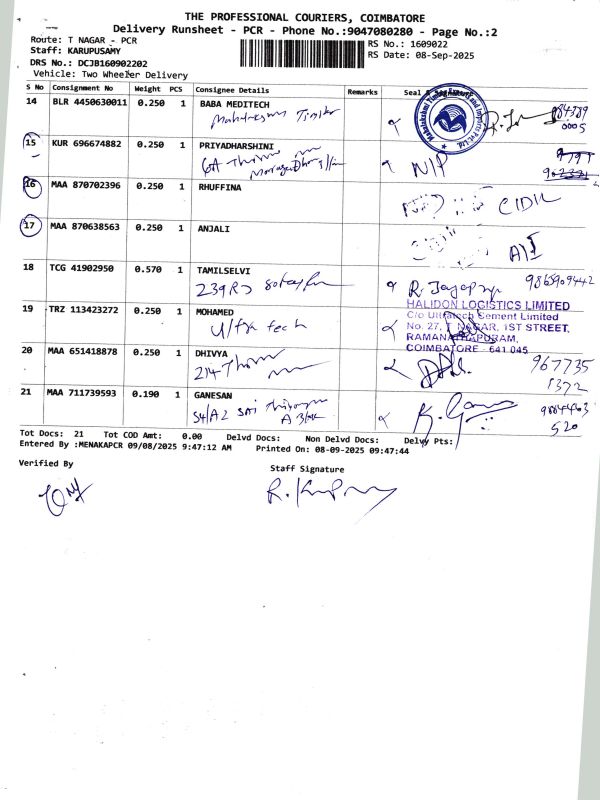 THE PROFESSIONAL COURIERS, COIMBATORE
Delivery Runsheet - PCR - Phone No.:9047080280 - Page No.:2
Route: T NAGAR - PCR
Staff: KARUPUSAMY
DRS No.: DCJB160902202
Vehicle: Two Wheeler Delivery
RS No.: 1609022
RS Date: 08-Sep-2025
S No Consignment No Weight PCS Consignee Details Remarks Seal & Signature
14 BLR 4450630011 0.250 1 BABA MEDITECH
15 KUR 696674882 0.250 1 PRIYADHARSHINI
NIP
16 MAA 870702396 0.250 1 RHUFFINA
17 MAA 870638563 0.250 1 ANJALI
18 TCG 41902950 0.570 1 TAMILSELVI
239
9865909442
19 TRZ 113423272 0.250 1 MOHAMED
Ultra tech
HALIDON LOGISTICS LIMITED
C/o Ultratech Cement Limited
No. 27, T NAGAR, IST STREET,
RAMANATHAPURAM,
COIMBATORE - 641 045
20 MAA 651418878 0.250 1 DHIVYA
214
967735
1372
21 MAA 711739593 0.190 1 GANESAN
S4/A2 SAI
520
Tot Docs: 21 Tot COD Amt: 0.00 Delvd Docs: Non Delvd Docs: Delvy Pts:
Entered By :MENAKAPCR 09/08/2025 9:47:12 AM Printed On: 08-09-2025 09:47:44
Verified By
Staff Signature